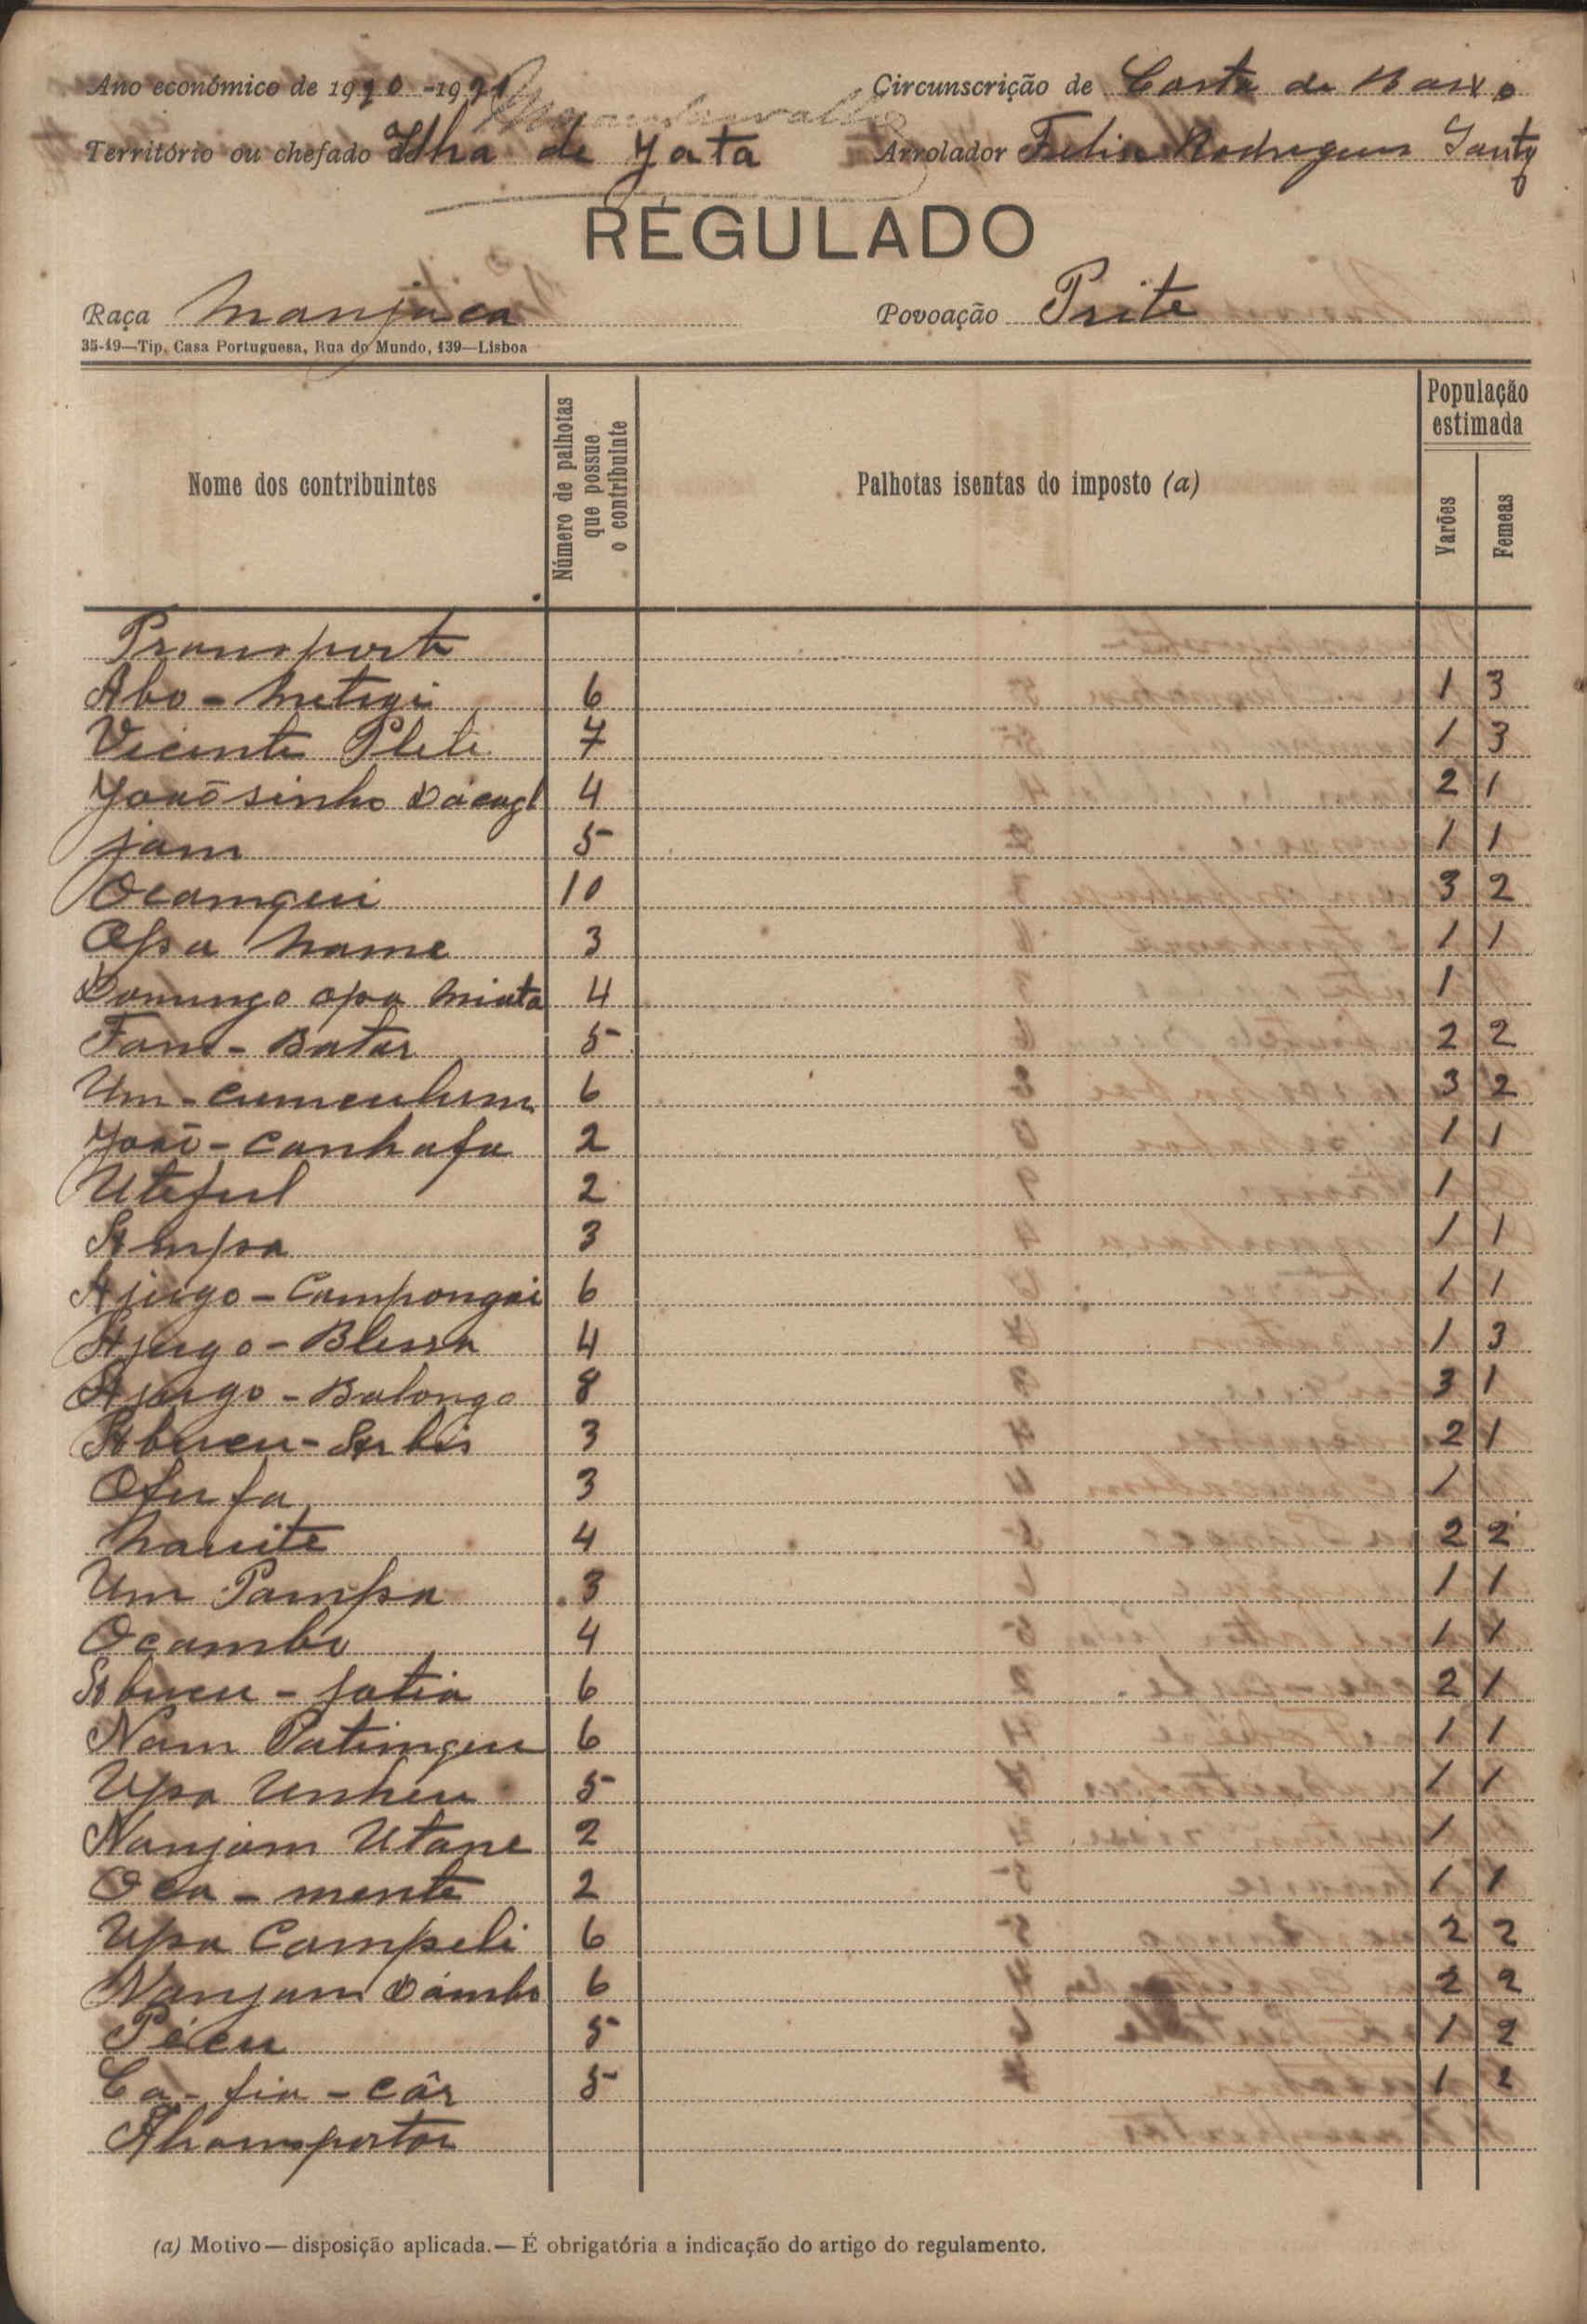 Ano económico de 1920-1921 Circunscrição de Costa de Baixo
Território ou chefado Ilha de Jata Arrolador Felix Rodrigues
REGULADO
Raça Manjaca Povoação Prite
35-19—Tip. Casa Portuguesa, Rua do Mundo, 139—Lisboa
Nome dos contribuintes
Número de palhotas que possue o contribuinte
Palhotas isentas do imposto (a)
População estimada
Varões
Femeas
Transporte
Abo - 6 1 3
Vicente 7 1 3
Joaõsinho 4 2 1
jam 5 1 1
Ocamqui 10 3 2
Opa Name 3 1 1
Domingo opa Miata 4 1
Fam - Batar 5 2 2
Um - 6 3 2
Joaõ - Canhafa 2 1 1
Uteful 2 1
Ampsa 3 1 1
Ajugo - Campongai 6 1 1
Ajugo - Blessa 4 1 3
Ajugo - Balongo 8 3 1
Abucu - 3 2 1
3 1
Nauite 4 2 2
Um Pampsa 3 1 1
Ocambi 4 1 1
Abucu - Jatia 6 2 1
Nam Patinque 6 1 1
Upa Unheu 5 1 1
Nanjam Utane 2 1
Oca - mente 2 1 1
Upa Campili 6 2 2
Nanjam 6 2 2
Pécu 5 1 2
Ca - fia - câr 5 1 2
Ahomsportar
(a) Motivo — disposição aplicada. — É obrigatória a indicação do artigo do regulamento.